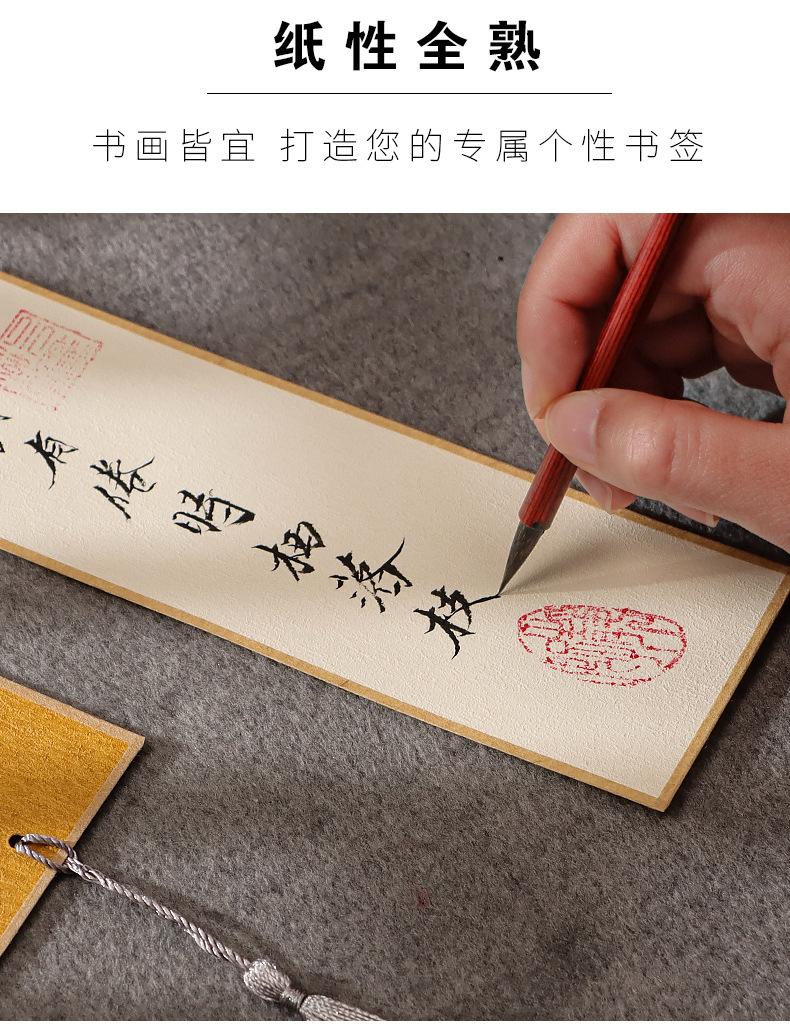 纸性全熟
书画皆宜 打造您的专属个性书签
有倦时栖芳枝